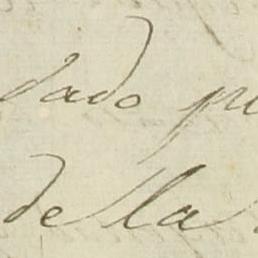 dado
de la